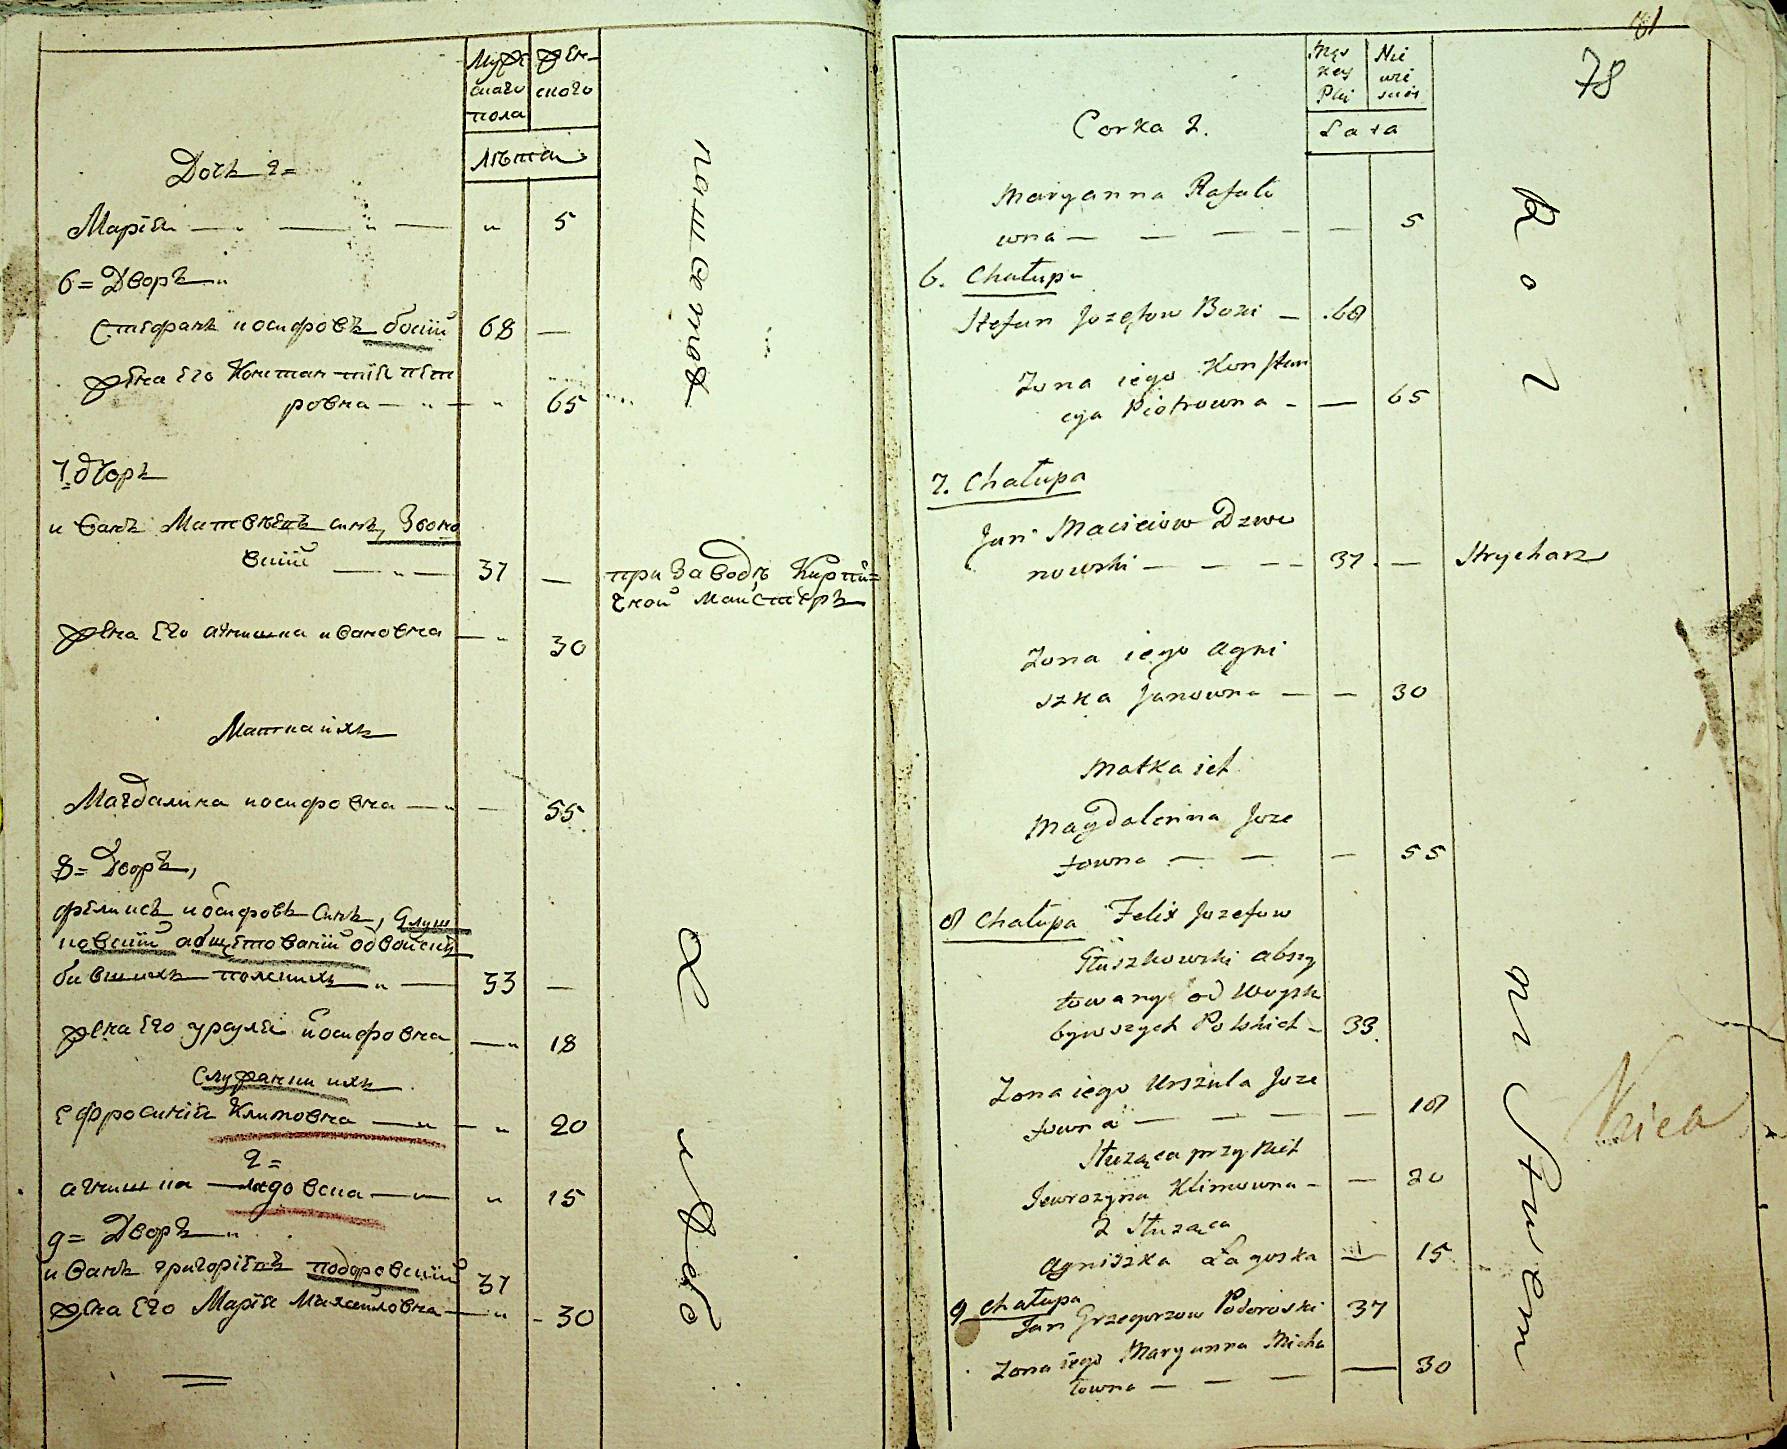 Мужскаго пола
Женскаго
Лѣта
Дочь 2=
Марія — „ — „ — „ 5
6= Дворъ „
Стефанъ Иосифовъ Боțий 68 —
Жена его Констанція Пет
ровна — „ — „ 65
7= дворъ
Иванъ Матвѣевъ сынъ, Звоно
вский — „ — 37 —
при заводѣ Кирпи=
чной Маистеръ
Жена его Агнишка Ивановна — „ 30
Матка ихъ
Магдалина Иосифовна — „ — 55
8= Дворъ,
Феликсъ Иосифовъ сынъ, Глуш
ковский абшетований одвойскъ
бившихъ полскихъ „ — 33 —
Жена его Урсуля Иосифовна — „ 18
Служащи ихъ
Ефросинія Климовна — „ — „ 20
2=
Агнишка — „ 15
9= Дворъ „
Иванъ Григоріевъ Подоровский 37
Жена его Марія Михайловна — „ - 30
пашетъ
хлѣб
78
Męs
key
Płci
Nie
wie
sciey
Lata
Corka 2.
Maryanna Rafało
wna — — — — — 5
6. Chałupa
Stefan Jozefow Boxi — 68
Zona iego Konstan
cya Piotrowna - — 65
7. Chałupa
Jan Macieiow Dzwo
nowski — — — - 37. — Strycharz
Zona iego Agni
szka Janowna — — 30
Matka ich
Magdalenna Joze
fowna — — — 55
8 Chałupa Felix Jozefow
Głuszkowski abszy
towany od woysk
bywszych Polskich - 33.
Zona iego Urszula Joze
fowna — — — — 18
Służąca przy nich
Jewrozyna Klimowna - — 20
2 Służąca
Agniszka — 15
9 Chałupa
Jan Grzegorzow Podoroski 37
Zona iego Maryanna Micha
łowna — — — — 30
Rol